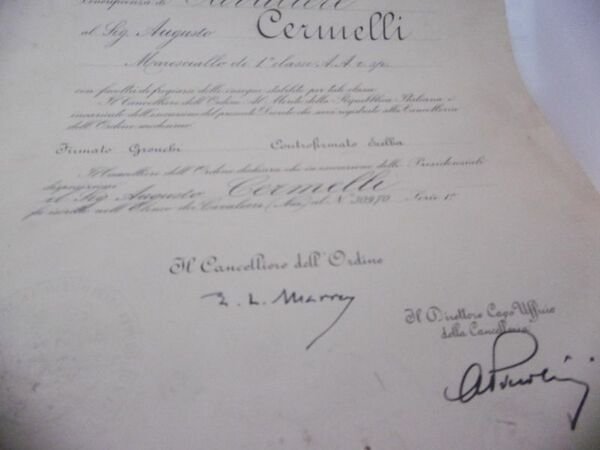 l'onorificenza di Cavaliere
al Sig. Augusto Cermelli
Maresciallo di 1ª classe A.A.r.sp.
con facoltà di fregiarsi delle insegne stabilite per tale classe
Il Cancelliere dell'Ordine "Al Merito della Repubblica Italiana" è
incaricato dell'esecuzione del presente Decreto che sarà registrato alla Cancelleria
dell'Ordine medesimo
Firmato Gronchi Controfirmato Scelba
Il Cancelliere dell'Ordine dichiara che in esecuzione delle Presidenziali
disposizioni
il Sig. Augusto Cermelli
fu iscritto nell'Elenco dei Cavalieri al N. 30970 Serie 1ª
Il Cancelliere dell'Ordine
Il Direttore Capo Ufficio
della Cancelleria